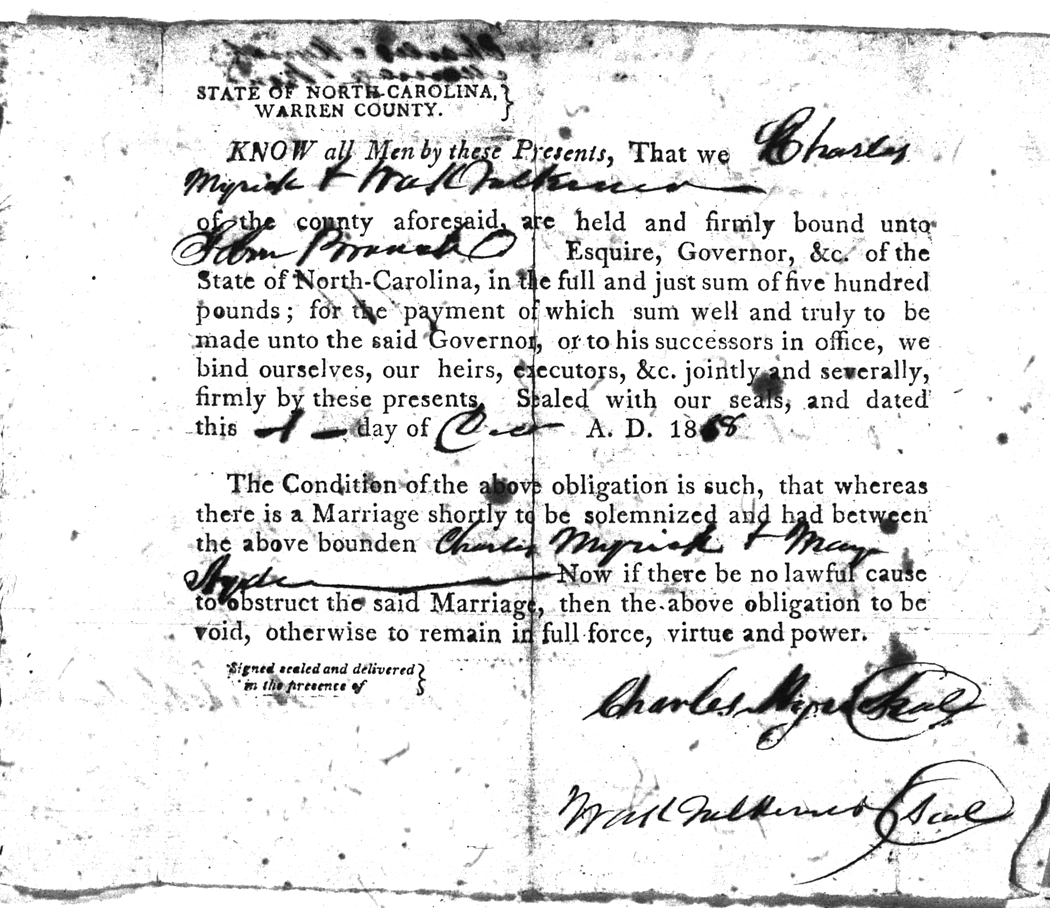 STATE OF NORTH-CAROLINA,
WARREN COUNTY.
KNOW all Men by these Presents, That we Charles
Myrick & Falkener
of the county aforesaid, are held and firmly bound unto
John Branch Esquire, Governor, &c. of the
State of North-Carolina, in the full and just sum of five hundred
pounds; for the payment of which sum well and truly to be
made unto the said Governor, or to his successors in office, we
bind ourselves, our heirs, executors, &c. jointly and severally,
firmly by these presents. Sealed with our seals, and dated
this day of A. D. 18
The Condition of the above obligation is such, that whereas
there is a Marriage shortly to be solemnized and had between
the above bounden Charles Myrick &
Now if there be no lawful cause
to obstruct the said Marriage, then the above obligation to be
void, otherwise to remain in full force, virtue and power.
Signed sealed and delivered
in the presence of
Charles Myrick Seal
Falkener Seal